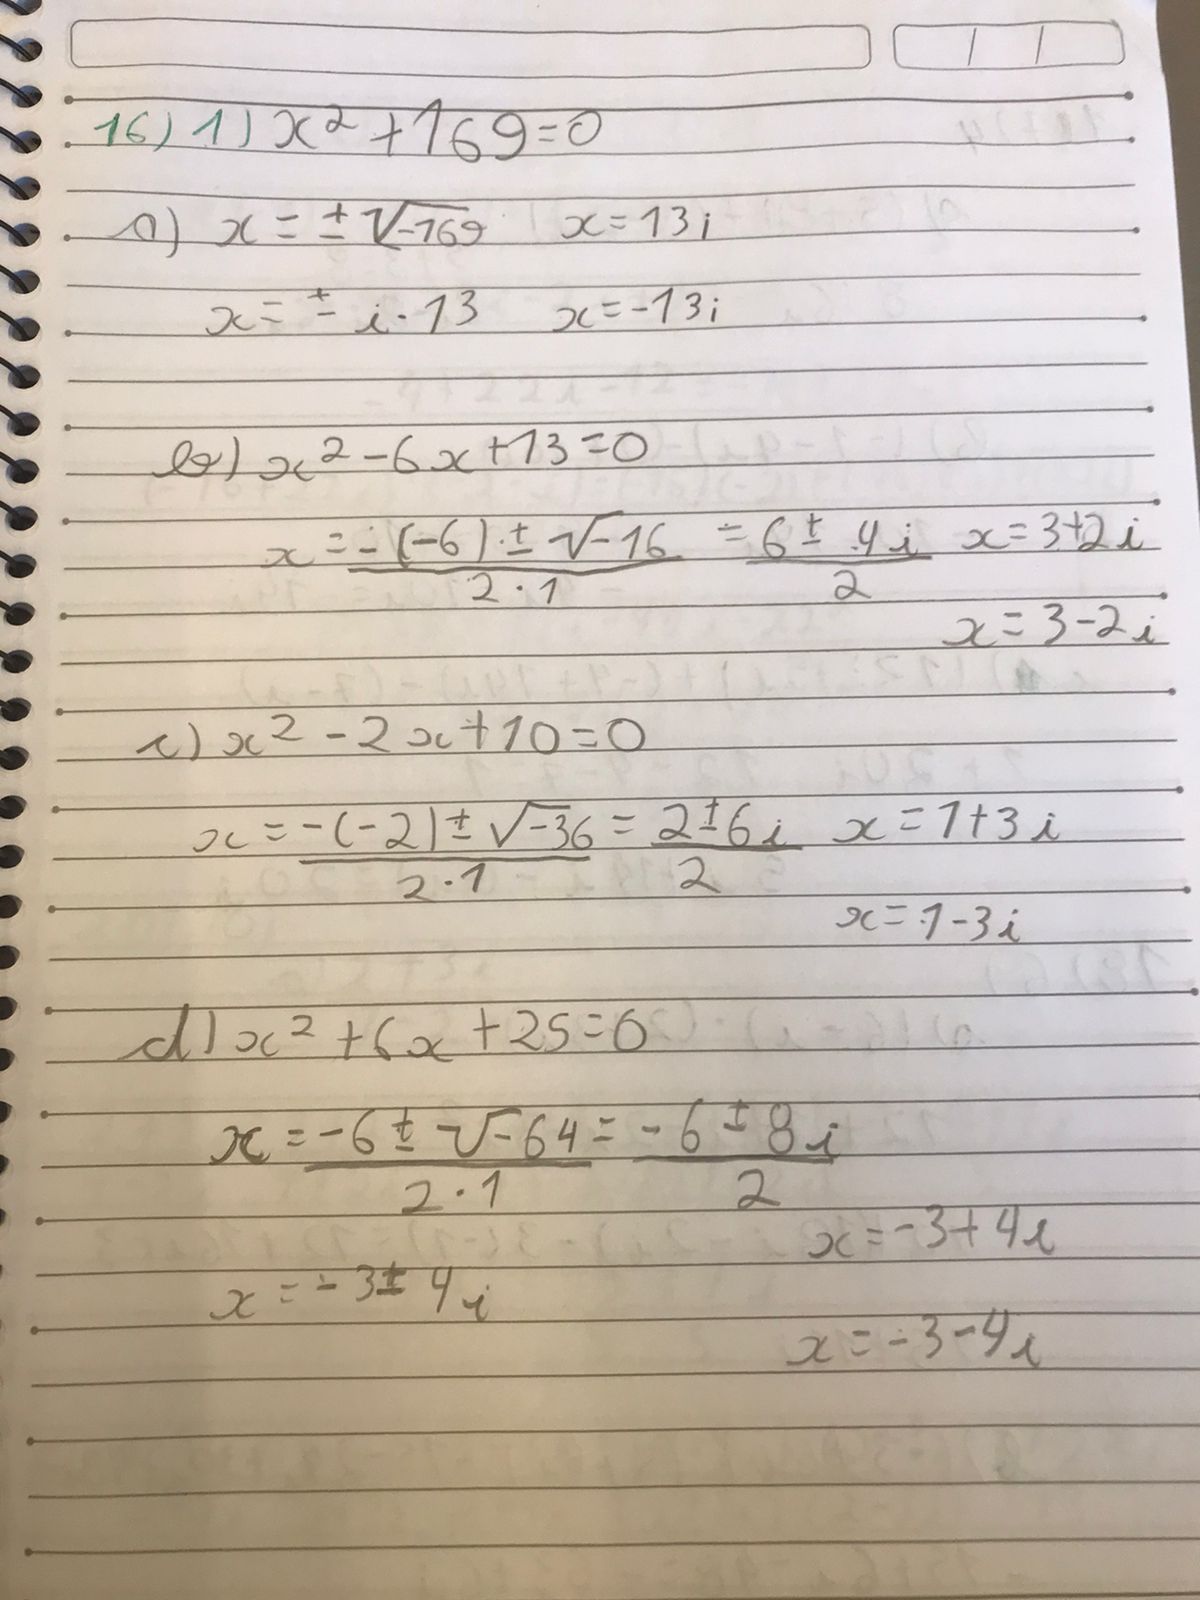 16) 1) x² + 169 = 0
a) x = ± √-169 x = 13i
x = ± i · 13 x = -13i
b) x² - 6x + 13 = 0
x = -(-6) ± √-16 / 2 · 1 = 6 ± 4i / 2 x = 3 + 2i
x = 3 - 2i
c) x² - 2x + 10 = 0
x = -(-2) ± √-36 / 2 · 1 = 2 ± 6i / 2 x = 1 + 3i
x = 1 - 3i
d) x² + 6x + 25 = 0
x = -6 ± √-64 / 2 · 1 = -6 ± 8i / 2
x = -3 + 4i
x = -3 ± 4i
x = -3 - 4i